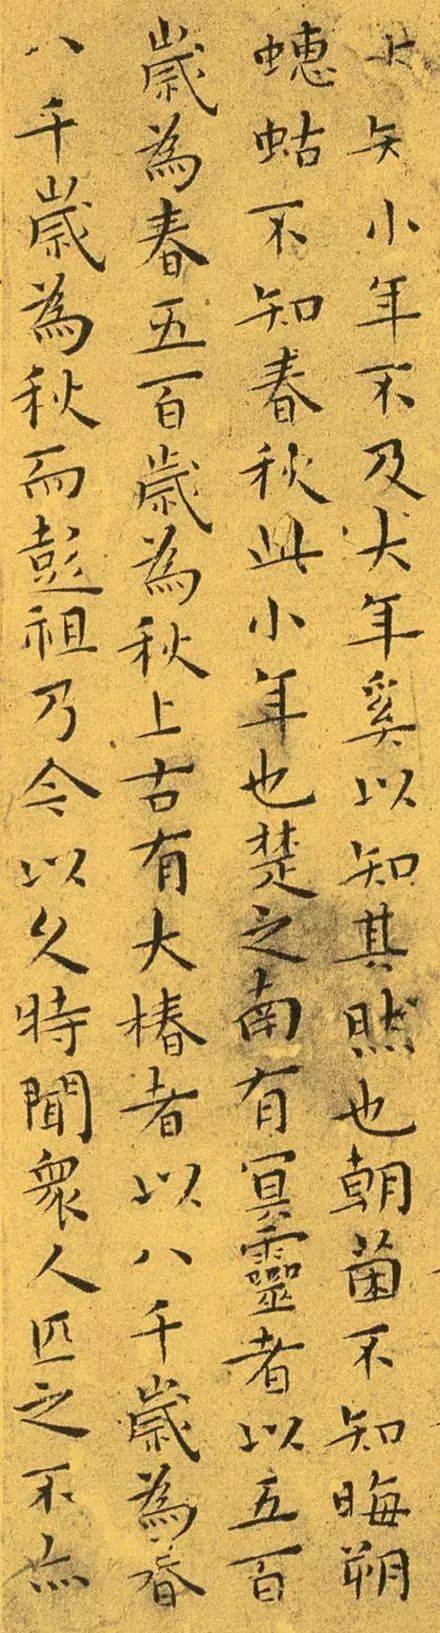 小年不及大年奚以知其然也朝菌不知晦朔
蟪蛄不知春秋此小年也楚之南有冥靈者以五百
歲為春五百歲為秋上古有大椿者以八千歲為春
八千歲為秋而彭祖乃今以久特聞眾人匹之不亦